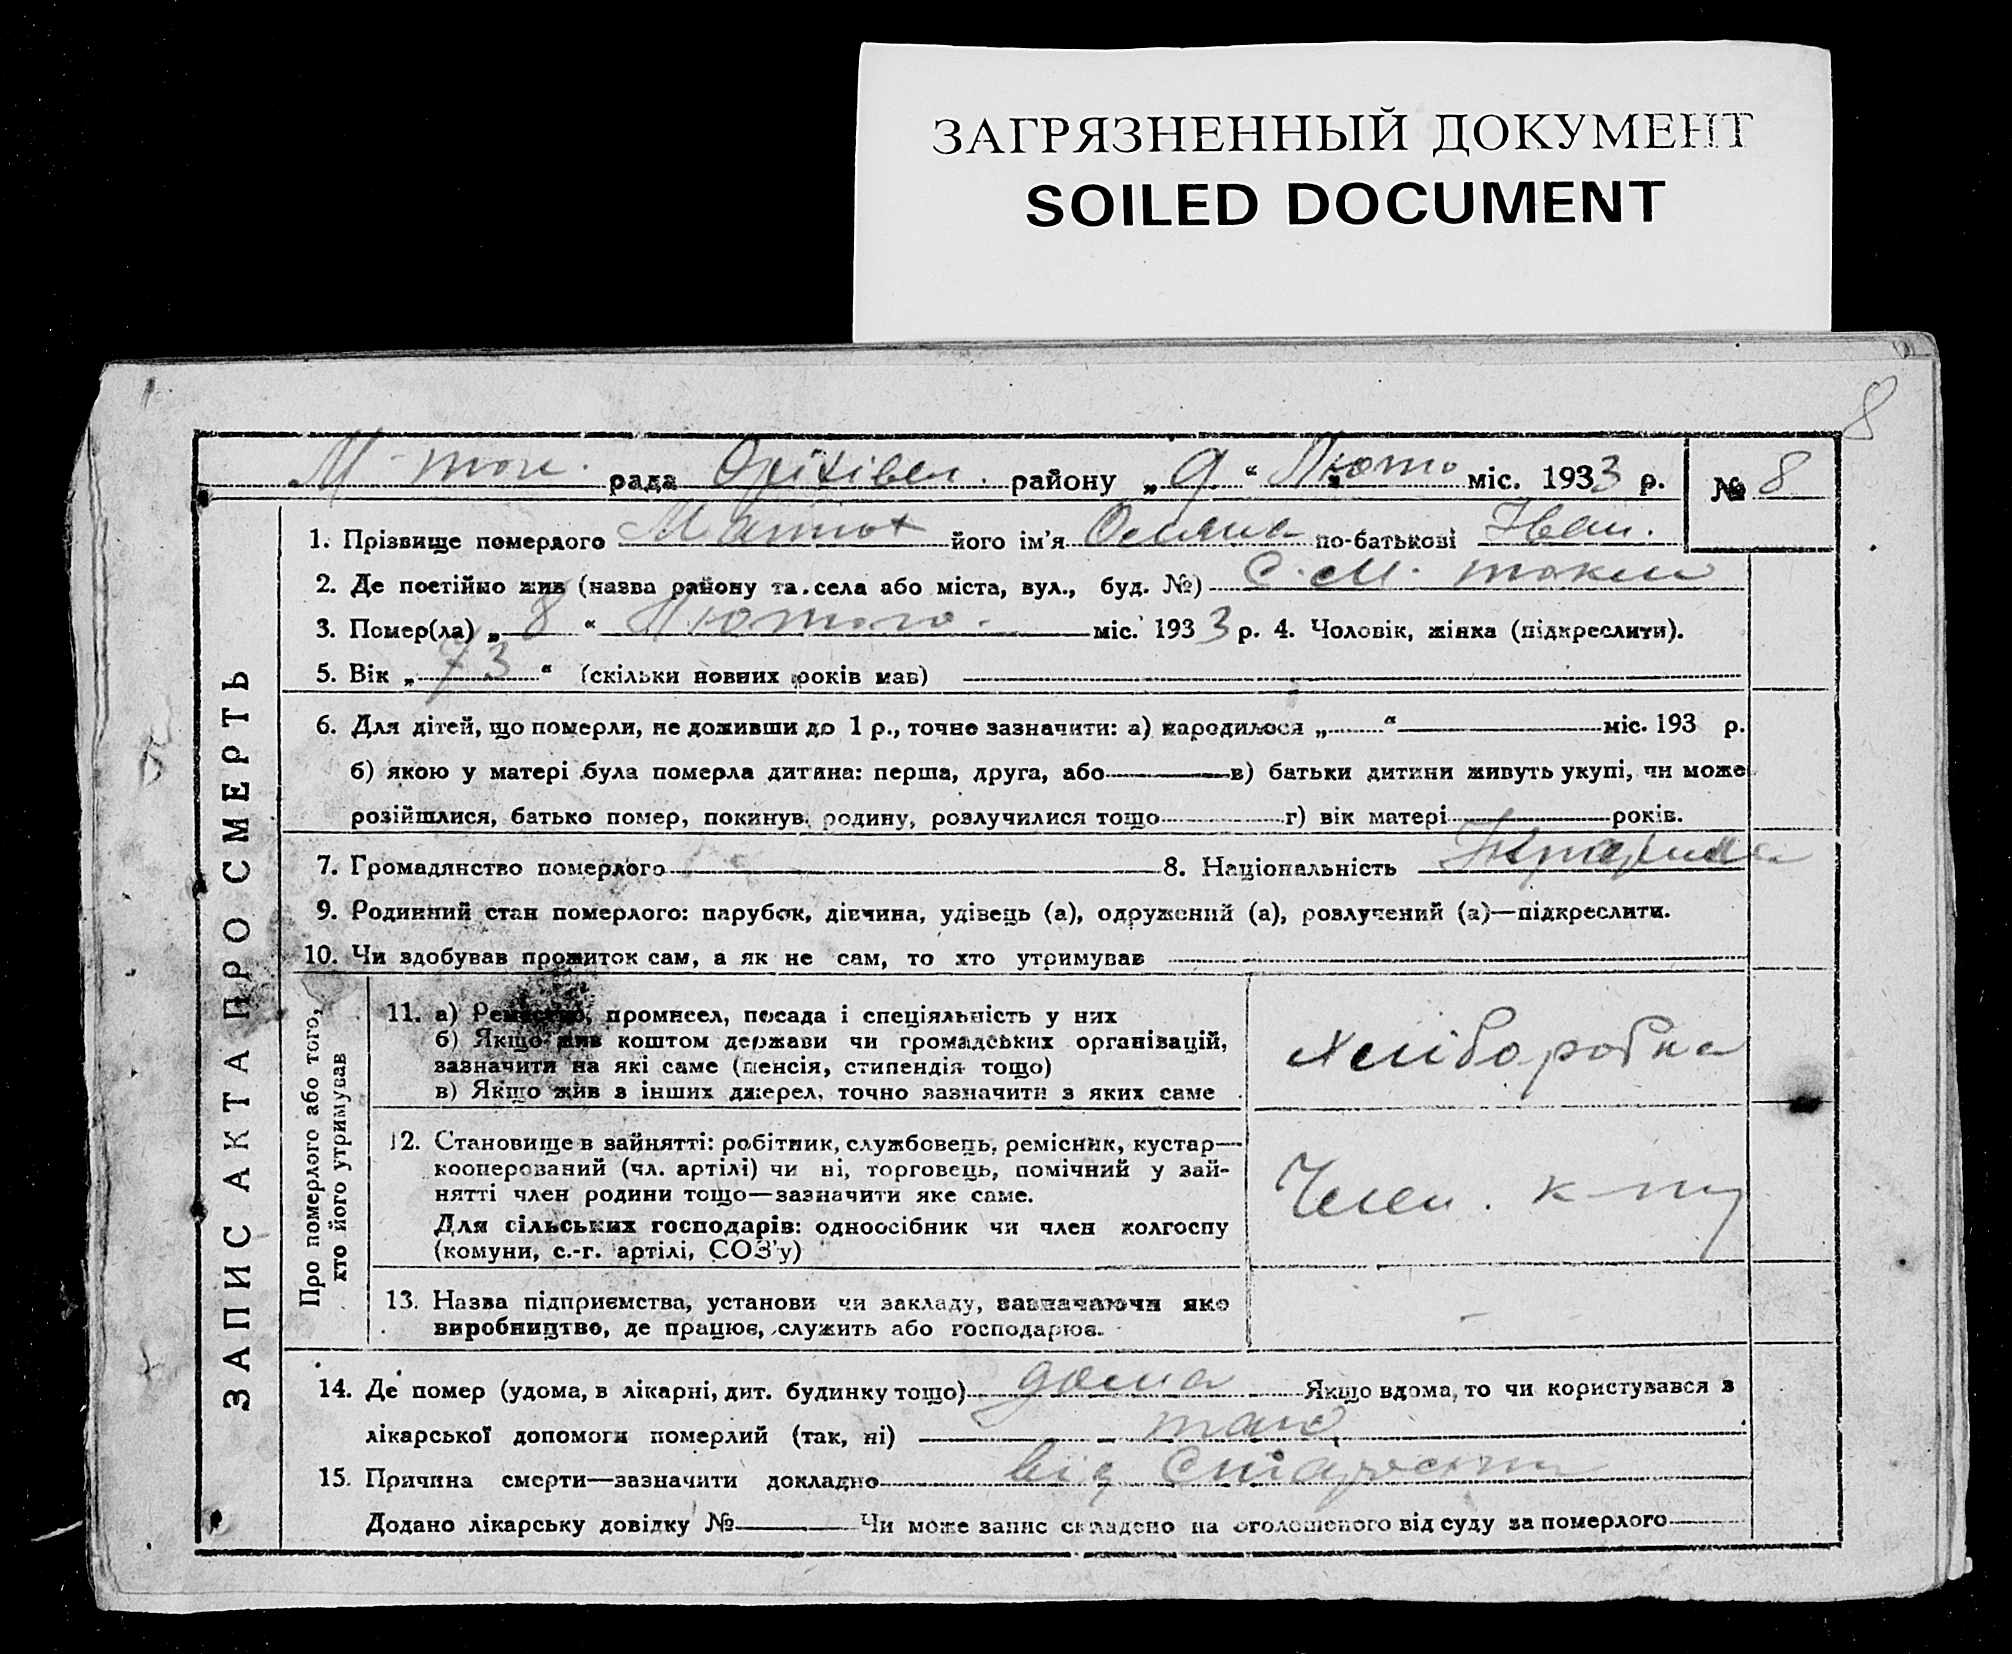 ЗАГРЯЗНЕННЫЙ ДОКУМЕНТ
SOILED DOCUMENT
8
М-ток. рада Оріхівск. району „ 9 “ Лютого міс. 1933 р. № 8
1. Прізвище померлого його ім'я по-батькові Іван.
2. Де постійно жив (назва району та села або міста, вул., буд. №) С. М. токма
3. Помер(ла) „ 8 “ Лютого. міс. 1933 р. 4. Чоловік, жінка (підкреслити).
5. Вік „ 73 “ (скільки повних років мав)
6. Для дітей, що померли, не доживши до 1 р., точно зазначити: а) народилося „ “ міс. 193 р.
б) якою у матері була померла дитина: перша, друга, або в) батьки дитини живуть укупі, чи може
розійшлися, батько помер, покинув родину, розлучилися тощо г) вік матері років.
7. Громадянство померлого 8. Національність
9. Родинний стан померлого: парубок, дівчина, удівець (а), одружений (а), розлучений (а)—підкреслити.
10. Чи здобував прожиток сам, а як не сам, то хто утримував
ЗАПИС АКТА ПРО СМЕРТЬ
Про померлого або того,
хто його утримував
11. а) Ремество, промисел, посада і спеціяльність у них
б) Якщо жив коштом держави чи громадських організацій,
зазначити на які саме (пенсія, стипендія тощо)
в) Якщо жив з інших джерел, точно зазначити з яких саме
хліборобка
12. Становище в зайнятті: робітник, службовець, ремісник, кустар—
кооперований (чл. артілі) чи ні, торговець, помічний у зай-
нятті член родини тощо—зазначити яке саме.
Для сільських господарів: одноосібник чи член колгоспу
(комуни, с.-г. артілі, СОЗ'у)
Член. к-пу
13. Назва підприємства, установи чи закладу, зазначаючи яке
виробництво, де працює, служить або господарює. -
14. Де помер (удома, в лікарні, дит. будинку тощо) дома Якщо вдома, то чи користувався з
лікарської допомоги померлий (так, ні) так
15. Причина смерти—зазначити докладно від Старости
Додано лікарську довідку № Чи може запис складено на оголошеного від суду за померлого